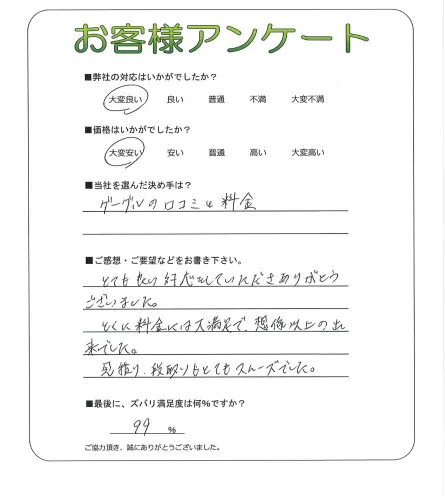 お客様アンケート
■弊社の対応はいかがでしたか?
大変良い 良い 普通 不満 大変不満
■価格はいかがでしたか?
大変安い 安い 普通 高い 大変高い
■当社を選んだ決め手は?
グーグルの口コミと料金
■ご感想・ご要望などをお書き下さい。
とても良い対応していただきありがとう
ございました。
とくに料金には大満足で、想像以上の出
来でした。
見積り、段取りもとてもスムーズでした。
■最後に、ズバリ満足度は何%ですか?
99 %
ご協力頂き、誠にありがとうございました。